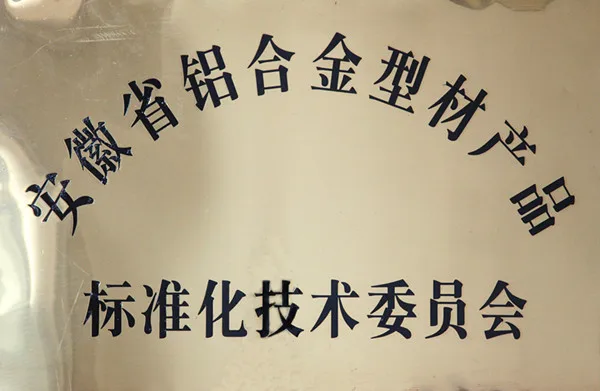 安徽省铝合金型材产品
标准化技术委员会